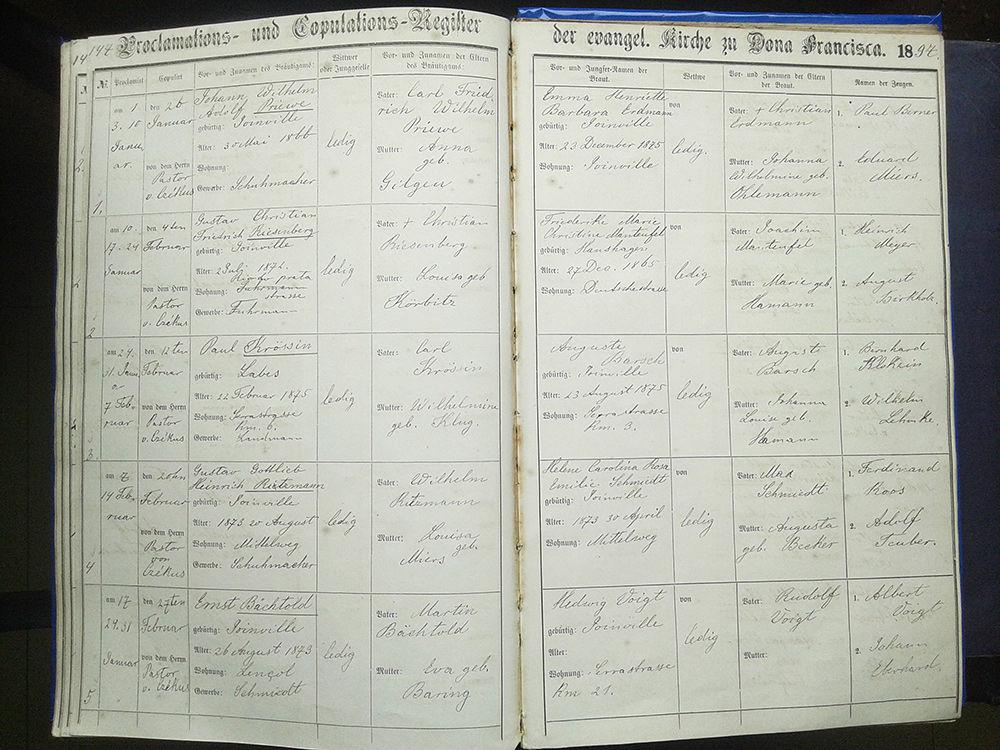 144 Proclamations- und Copulations-Register
№ Proclamirt Copulirt Vor- und Zunamen des Bräutigams: Wittwer oder Junggeselle Vor- und Zunamen der Eltern des Bräutigams:
1.
am 1
3. 10
Januar
den 26
Januar
von dem Herrn
Pastor
v. Czékus
Johann Wilhelm
Adolf Priewe
gebürtig: Joinville
Alter: 30 Mai 1866
Wohnung:
Gewerbe: Schuhmacher
ledig
Vater: Carl Fried
rich Wilhelm
Priewe
Mutter: Anna
geb.
2
am 10.
17-24
Januar
den 4ten
Februar
von dem Herrn
Pastor
v. Czékus
Gustav Christian
Friedrich Riesenberg
gebürtig: Joinville
Alter: 2 Juli 1872.
Wohnung: Fuhrmann
strasse
Gewerbe: Fuhrmann
ledig
Vater: + Christian
Riesenberg
Mutter: Louisa geb
Körbitz
3
am 24.
31. Janu
a
7 Feb
ruar
den 12ten
Februar
von dem Herrn
Pastor
v. Czékus
Paul Krössin
gebürtig: Labes
Alter: 22 Februar 1875
Wohnung: Serrastrasse
Km. 6.
Gewerbe: Landmann
ledig
Vater: Carl
Krössin
Mutter: Wilhelmine
geb. Klug.
4
am 7
14 Feb
ruar
den 20ten
Februar
von dem Herrn
Pastor
von
Czékus
Gustav Gottlieb
Heinrich Ritzmann
gebürtig: Joinville
Alter: 1873 20 August
Wohnung: Mittelweg
Gewerbe: Schuhmacher
ledig
Vater: Wilhelm
Ritzmann
Mutter: Louisa
geb.
Miers
5
am 17
24. 31
Januar
den 27ten
Februar
von dem Herrn
Pastor
v. Czékus
Ernst Bächtold
gebürtig: Joinville
Alter: 26 August 1873
Wohnung: Lençol
Gewerbe: Schmiedt
ledig
Vater: Martin
Bächtold
Mutter: Eva geb.
Baring
der evangel. Kirche zu Dona Francisca. 1894.
Vor- und Jungfer-Namen der Braut. Wittwe Vor- und Zunamen der Eltern der Braut. Namen der Zeugen.
Emma Henriette
Barbara Erdmann
gebürtig: Joinville
Alter: 23 December 1875
Wohnung: Joinville
von
ledig.
Vater: + Christian
Erdmann
Mutter: Johanna
Wilhelmine geb.
Ohlemann
1. Paul Berner
2. Eduard
Miers.
Friederike Marie
Christine Manteufel
gebürtig: Hanshagen
Alter: 27 Dec. 1865
Wohnung: Deutschestrasse
von
ledig
Vater: Joachim
Manteufel
Mutter: Marie geb.
Hamann
1. Heinrich
Meyer
2. August
Birkholz.
Auguste
Barsch
gebürtig: Joinville
Alter: 23 August 1875
Wohnung: Serrastrasse
Km. 3.
von
ledig
Vater: August
Barsch
Mutter: Johanna
Louise geb.
Hamann
1. Bernhard
2. Wilhelm
Lehmke.
Helene Carolina Rosa
Emilie Schmiedt
gebürtig: Joinville
Alter: 1873 30 April
Wohnung: Mittelweg
von
ledig
Vater: Max
Schmiedt
Mutter: Augusta
geb. Becker
1. Ferdinand
Koos
2. Adolf
Teuber.
Hedwig Voigt
gebürtig: Joinville
Alter:
Wohnung: Serrastrasse
Km 21.
von
ledig
Vater: Rudolf
Voigt
Mutter:
1. Albert
Voigt
2. Johann
Eberhard.